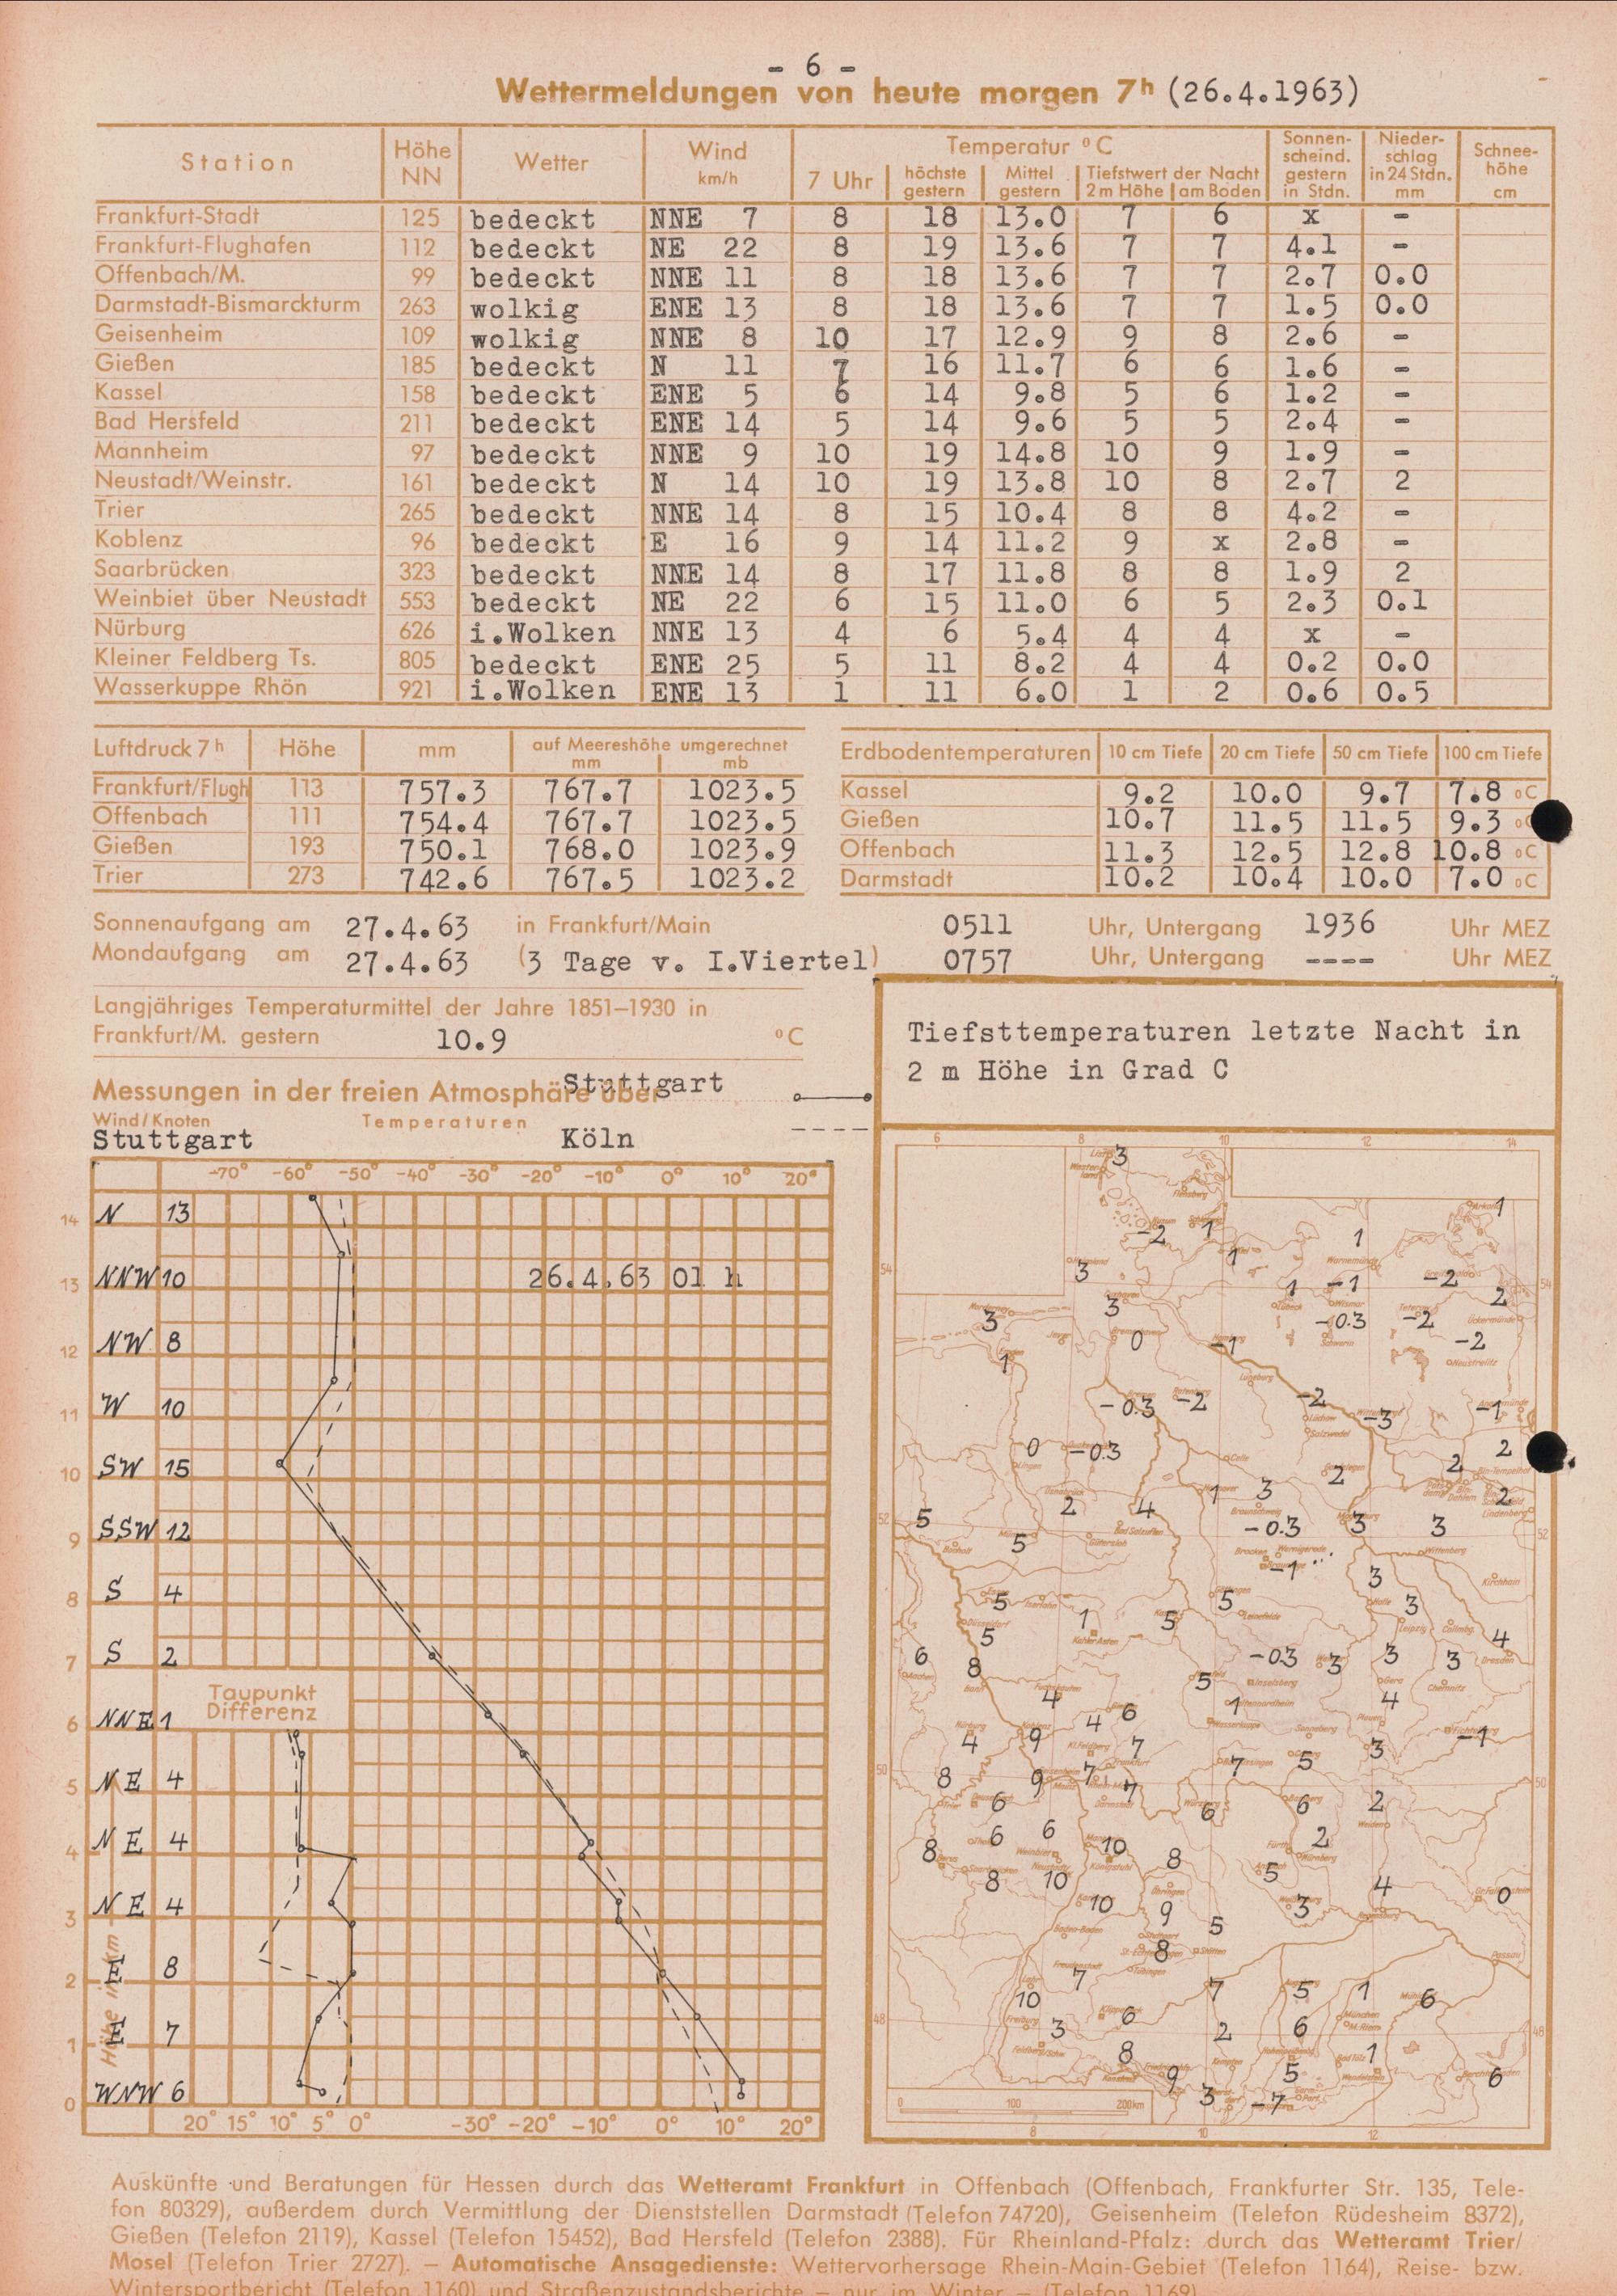 - 6 -
Wettermeldungen von heute morgen 7h (26.4.1963)
Station Höhe NN Wetter Wind km/h Temperatur °C Sonnenscheind. gestern in Stdn. Niederschlag in 24 Stdn. mm Schneehöhe cm
7 Uhr höchste gestern Mittel gestern Tiefstwert der Nacht 2 m Höhe am Boden
Frankfurt-Stadt 125 bedeckt NNE 7 8 18 13.0 7 6 x -
Frankfurt-Flughafen 112 bedeckt NE 22 8 19 13.6 7 7 4.1 -
Offenbach/M. 99 bedeckt NNE 11 8 18 13.6 7 7 2.7 0.0
Darmstadt-Bismarckturm 263 wolkig ENE 13 8 18 13.6 7 7 1.5 0.0
Geisenheim 109 wolkig NNE 8 10 17 12.9 9 8 2.6 -
Gießen 185 bedeckt N 11 7 16 11.7 6 6 1.6 -
Kassel 158 bedeckt ENE 5 6 14 9.8 5 6 1.2 -
Bad Hersfeld 211 bedeckt ENE 14 5 14 9.6 5 5 2.4 -
Mannheim 97 bedeckt NNE 9 10 19 14.8 10 9 1.9 -
Neustadt/Weinstr. 161 bedeckt N 14 10 19 13.8 10 8 2.7 2
Trier 265 bedeckt NNE 14 8 15 10.4 8 8 4.2 -
Koblenz 96 bedeckt E 16 9 14 11.2 9 x 2.8 -
Saarbrücken 323 bedeckt NNE 14 8 17 11.8 8 8 1.9 2
Weinbiet über Neustadt 553 bedeckt NE 22 6 15 11.0 6 5 2.3 0.1
Nürburg 626 i.Wolken NNE 13 4 6 5.4 4 4 x -
Kleiner Feldberg Ts. 805 bedeckt ENE 25 5 11 8.2 4 4 0.2 0.0
Wasserkuppe Rhön 921 i.Wolken ENE 13 1 11 6.0 1 2 0.6 0.5
Luftdruck 7h Höhe mm auf Meereshöhe umgerechnet mm mb
Frankfurt/Flugh 113 757.3 767.7 1023.5
Offenbach 111 754.4 767.7 1023.5
Gießen 193 750.1 768.0 1023.9
Trier 273 742.6 767.5 1023.2
Erdbodentemperaturen 10 cm Tiefe 20 cm Tiefe 50 cm Tiefe 100 cm Tiefe
Kassel 9.2 10.0 9.7 7.8 °C
Gießen 10.7 11.5 11.5 9.3 °C
Offenbach 11.3 12.5 12.8 10.8 °C
Darmstadt 10.2 10.4 10.0 7.0 °C
Sonnenaufgang am 27.4.63 in Frankfurt/Main 0511 Uhr, Untergang 1936 Uhr MEZ
Mondaufgang am 27.4.63 (3 Tage v. I.Viertel) 0757 Uhr, Untergang ---- Uhr MEZ
Langjähriges Temperaturmittel der Jahre 1851–1930 in
Frankfurt/M. gestern 10.9 °C
Messungen in der freien Atmosphäre über Stuttgart
Wind/Knoten Temperaturen
Stuttgart Köln
-70° -60° -50° -40° -30° -20° -10° 0° 10° 20°
14 N 13
13 NNW 10 26.4.63 01 h
12 NW 8
11 W 10
10 SW 15
9 SSW 12
8 S 4
7 S 2
Taupunkt
Differenz
6 NNE 1
5 NE 4
4 NE 4
3 NE 4
2 E 8
1 E 7
0 WNW 6
Höhe in km
20° 15° 10° 5° 0° -30° -20° -10° 0° 10° 20°
Tiefsttemperaturen letzte Nacht in
2 m Höhe in Grad C
6 8 10 12 14
3
1
-2 1 1 1
3
54 1 -1 -2 54
3 3 2
-0.3 -2
1 0 -1 -2
-0.3 -2 -2 -3 -1
0 -0.3 2 2 2
2 4 1 3 2
52 5 5 -0.3 3 3 52
-1 3
5 1 5 5 3
5 4
6 8 5 -0.3 3 3 3
4 6 1 4
4 9 4 7 3 -1
50 8 9 7 7 7 5 50
6 6 6 2
8 6 6 10 8 2
8 10 5 4 0
10 9 5 3
7 8
10 7 5 1 6
48 3 6 2 6 48
8 1
9 5 6
3 -7
0 100 200 km
8 10 12
Auskünfte und Beratungen für Hessen durch das Wetteramt Frankfurt in Offenbach (Offenbach, Frankfurter Str. 135, Tele-
fon 80329), außerdem durch Vermittlung der Dienststellen Darmstadt (Telefon 74720), Geisenheim (Telefon Rüdesheim 8372),
Gießen (Telefon 2119), Kassel (Telefon 15452), Bad Hersfeld (Telefon 2388). Für Rheinland-Pfalz: durch das Wetteramt Trier/
Mosel (Telefon Trier 2727). – Automatische Ansagedienste: Wettervorhersage Rhein-Main-Gebiet (Telefon 1164), Reise- bzw.
Wintersportbericht (Telefon 1160) und Straßenzustandsberichte – nur im Winter – (Telefon 1169)